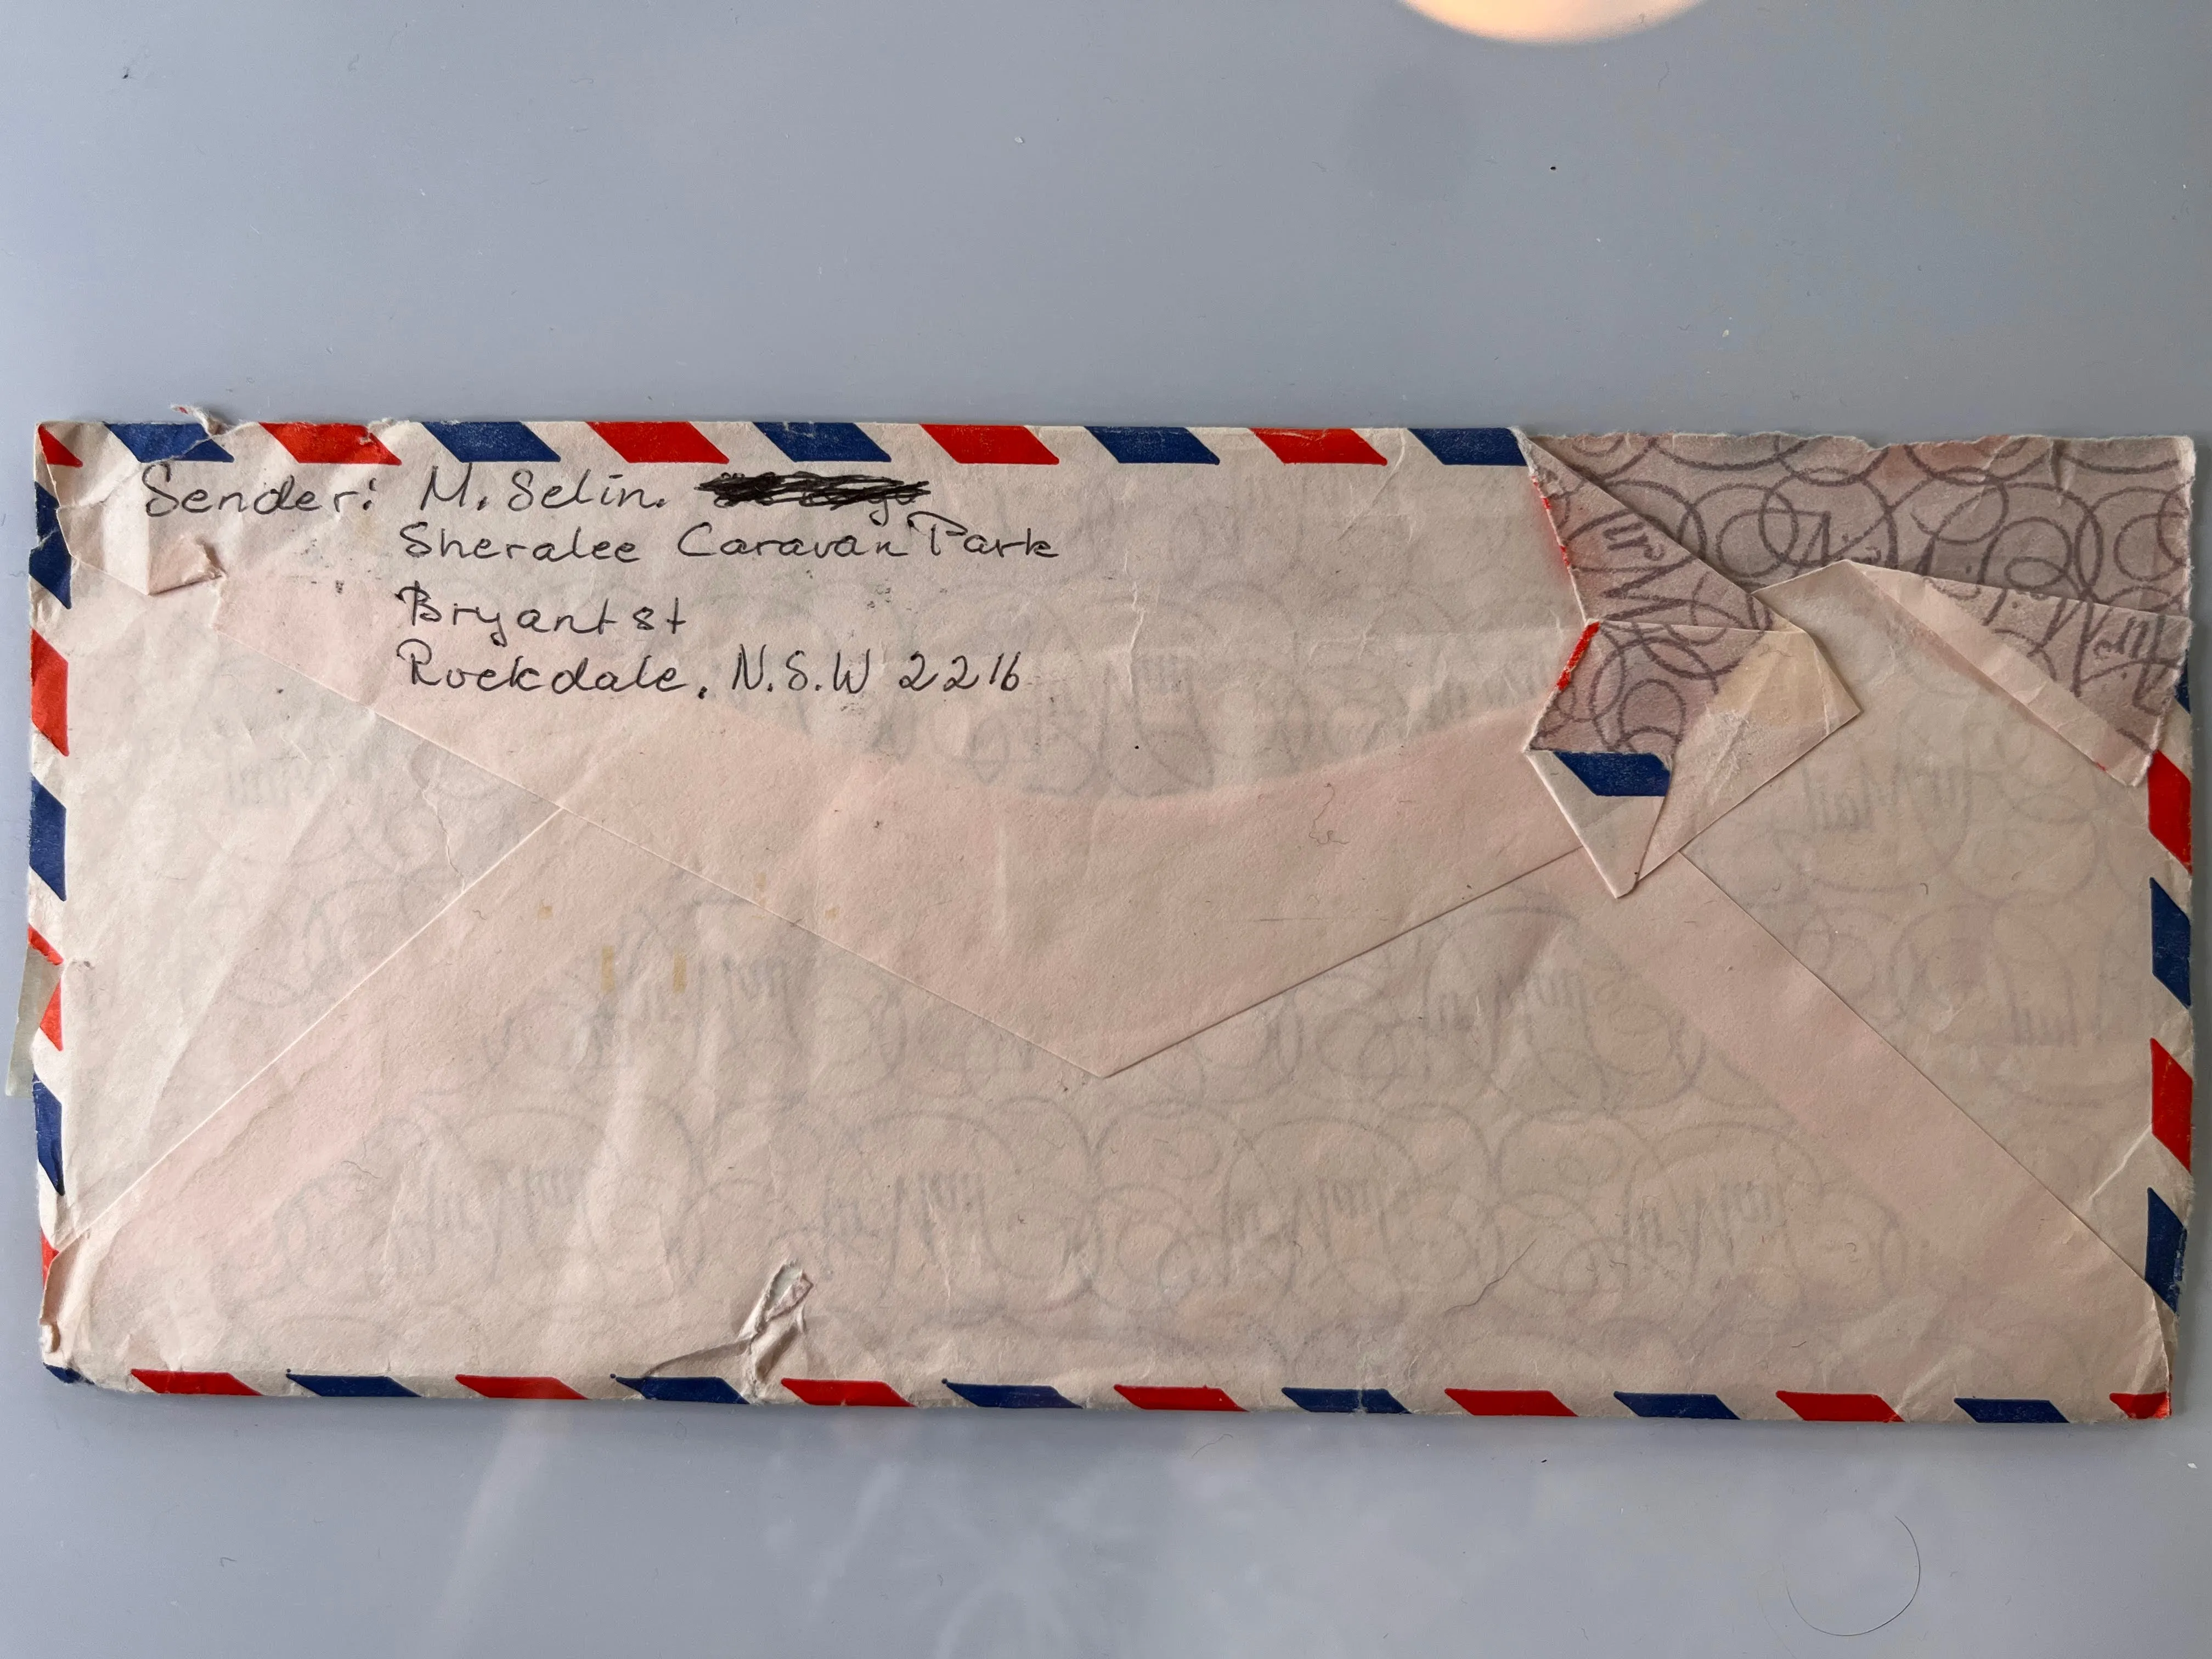 Sender: M. Selin.
Sheralee Caravan Park
Bryant st
Rockdale, N.S.W 2216